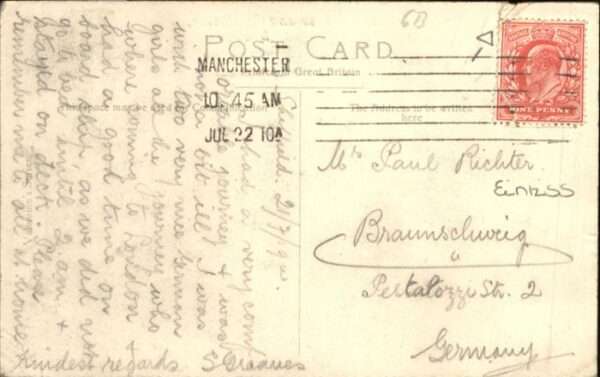 6B
POST CARD
MANCHESTER
10.45 AM
JUL 22 10A
Printed in Great Britain
This space may be used for Communication
The Address to be written
here
ONE PENNY
21/7/10.
had a very
journey & was
bit ill! I was
with two very nice German
girls all the journey who
where going to London &
had a good time on
board ship as we did not
go to bed until 2 a.m &
stayed on deck. Please
remember me to all at home
Kindest regards S Greaves
Paul Richter
Einess
Braunschweig
Pestalozzi Str. 2
Germany